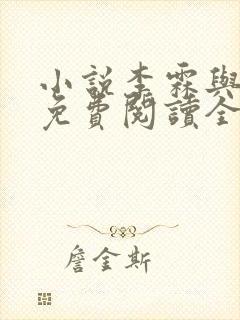 小說李霖與
免費閱讀全
詹金斯